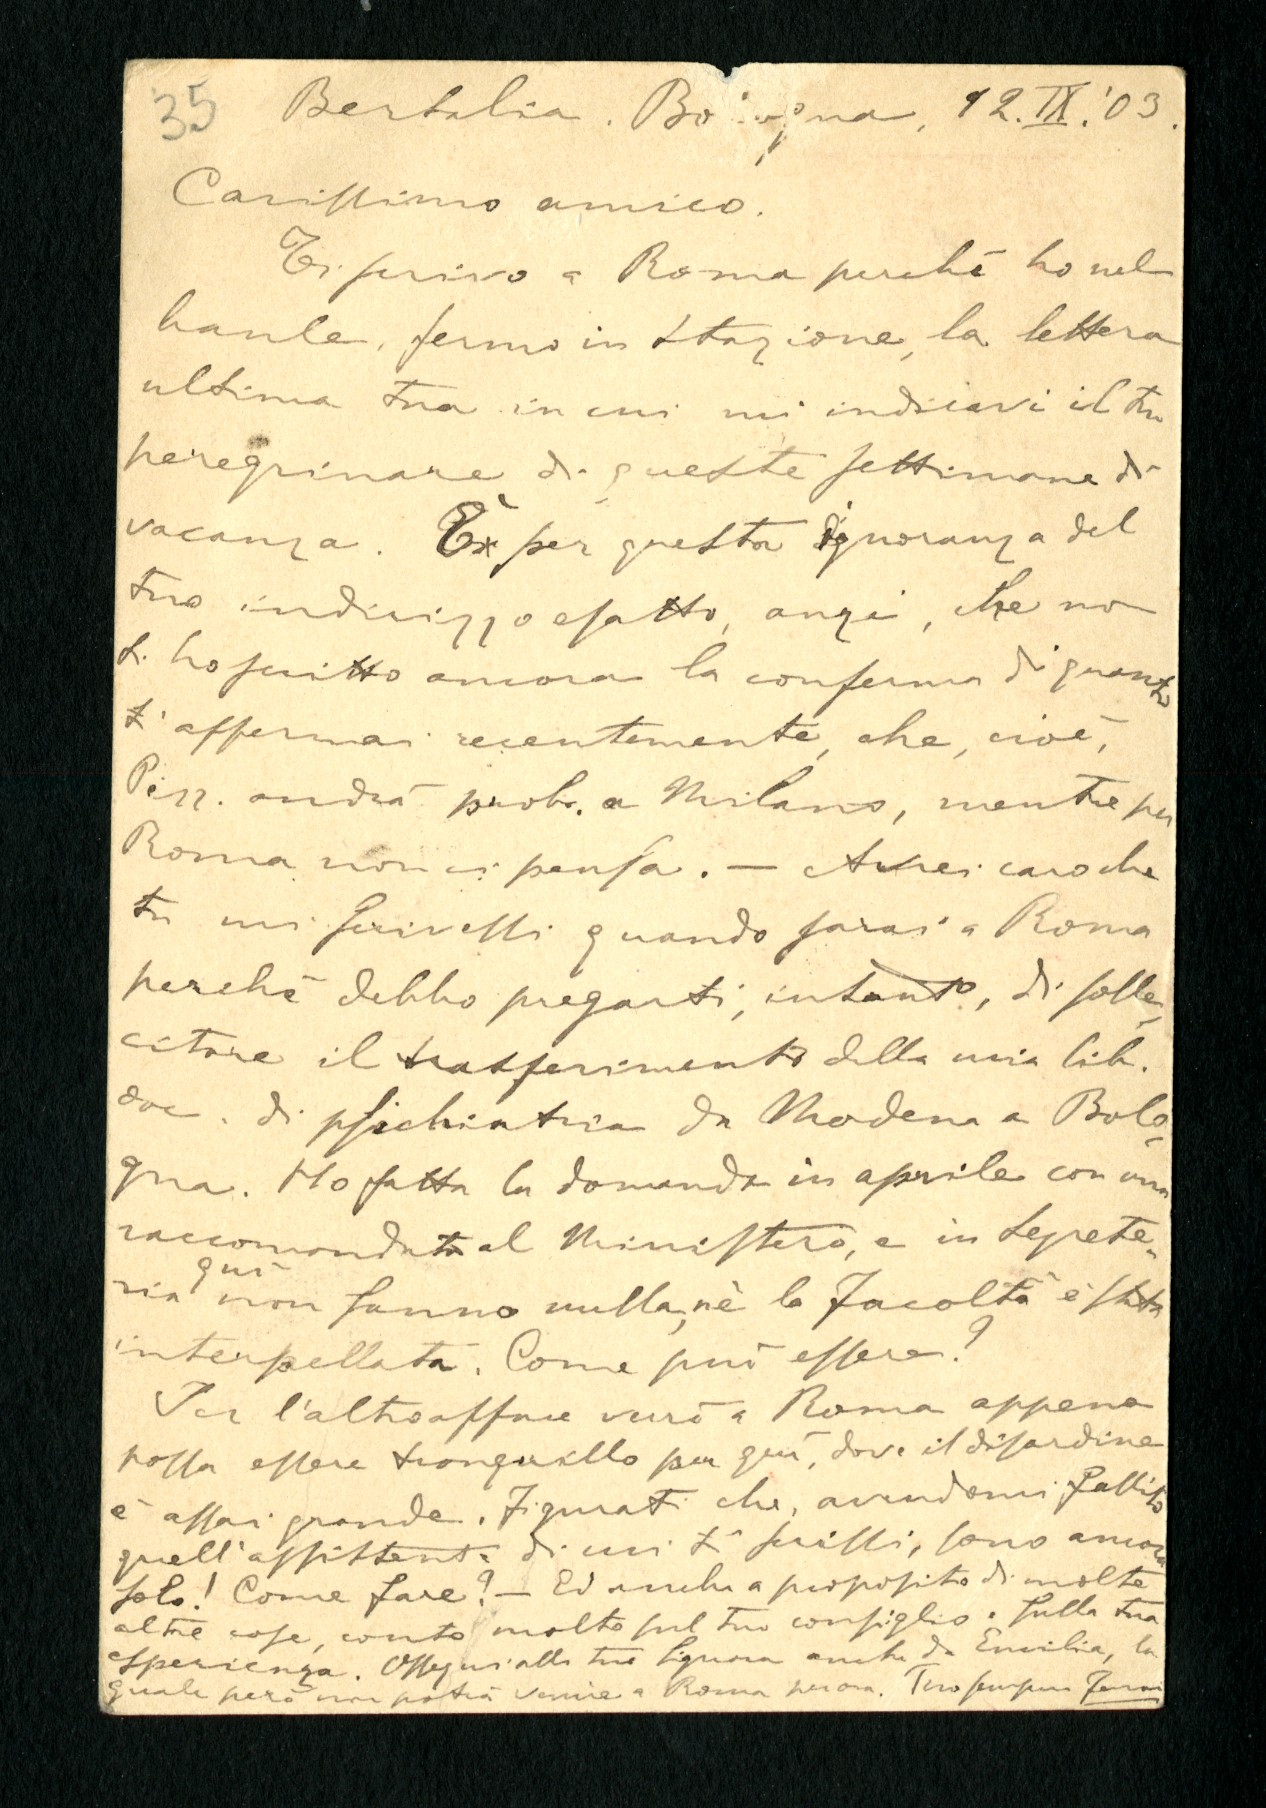 35 Bertalia. Bologna, 12.IX.'03.
Carissimo amico.
Ti scrivo a Roma perchè ho nel
baule, fermo in stazione, la lettera
ultima tua in cui mi indicavi il tu
peregrinare di queste settimane di
vacanza. È per questa ignoranza del
tuo indirizzo esatto, anzi, che no
t. ho scritto ancora la conferma di quanto
t'affermai recentemente, che, cioè,
Pizz. andrà prob. a Milano, mentre per
Roma non ci pensa. — Avrei caro che
tu mi scrivessi quando sarai a Roma
perchè debbo pregarti, intanto, di solle-
citare il trasferimento della mia lib.
doc. di psichiatria da Modena a Bolo-
gna. Ho fatta la domanda in aprile con una
raccomandata al Ministero, e in Segrete-
ria qui non sanno nulla, nè la Facoltà è stata
interpellata. Come può essere?
Per l'altro affare verrò a Roma appena
possa essere tranquillo per qui, dove il disordine
è assai grande. Figurati che, avendomi fallito
quell'assistente di cui ti scrissi, sono ancora
solo! Come fare? — Ed anche a proposito di molte
altre cose, conto molto sul tuo consiglio. sulla tua
esperienza. Ossequi alla tua Signora anche da Emilia, la
quale però non potrà venire a Roma per ora. Tuo sempre